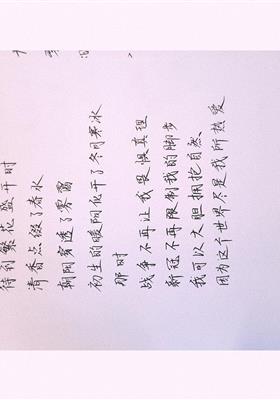 待到繁花盛开时
清香点缀了春水
朝阳穿透了雾霭
初生的暖阳化开了冬河寒冰
那时
战争不再让我畏惧真理
新冠不再限制我的脚步
我可以大胆拥抱自然、
因为这个世界尽是我所热爱